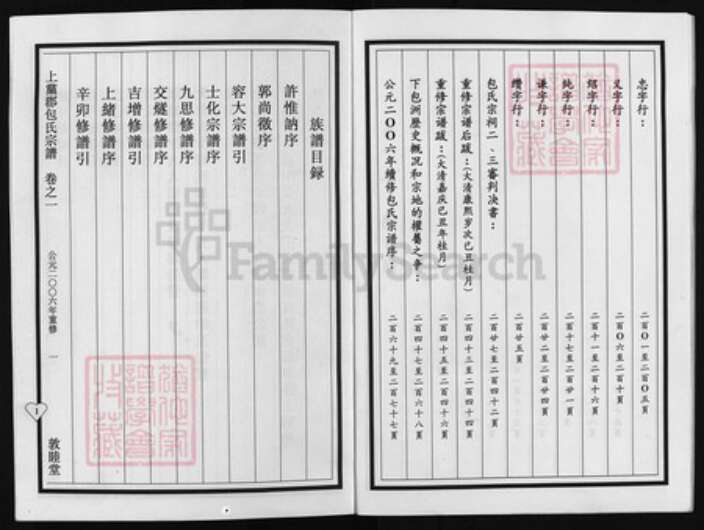 忠字行：二百〇一至二百〇五頁
义字行：二百〇六至二百十頁
紹字行：二百十一至二百十六頁
純字行：二百十七至二百廿一頁
谦字行：二百廿二至二百廿四頁
纘字行：二百廿五頁
包氏宗祠二、三審判决書：二百廿七至二百四十二頁
重修宗谱后跋：(大清康熙岁次己丑桂月)二百四十三至二百四十四頁
重修宗譜跋：(大清嘉庆己丑年桂月)二百四十五至二百四十六頁
下包洲歷史概况和宗地的權屬之争：二百四十七至二百六十八頁
公元二〇〇六年續修包氏宗譜序：二百六十九至二百七十七頁
族譜目録
許惟訥序
郭尚徵序
容大宗譜引
士化宗譜序
九思修譜序
交燧修譜序
吉增修譜引
上緒修譜序
辛卯修譜引
上黨郡包氏宗譜 卷之一 公元二〇〇六年重修 一
1
敦睦堂
FamilySearch